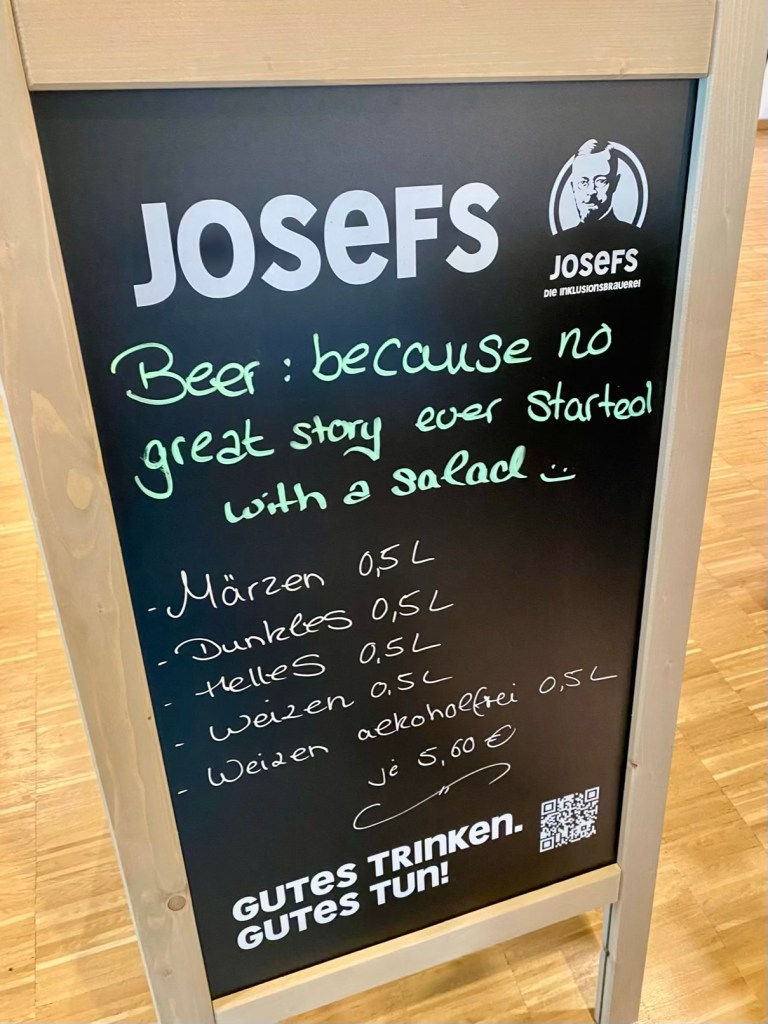 JOSEFS
JOSEFS
DIE INKLUSIONSBRAUEREI
Beer: because no
great story ever started
with a salad
- Märzen 0,5 L
- Dunkles 0,5 L
- Helles 0,5 L
- Weizen 0,5 L
- Weizen alkoholfrei 0,5 L
je 5,60 €
GUTES TRINKEN.
GUTES TUN!